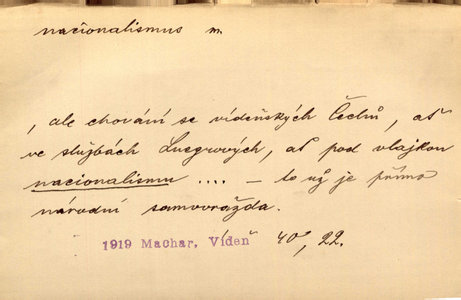 nacionalismus m.
, ale chování se vídeňských Čechů, ať
ve službách Luegrových, ať pod vlajkou
nacionalismu .... — to už je přímo
národní samovražda.
1919 Machar, Vídeň 40, 22.